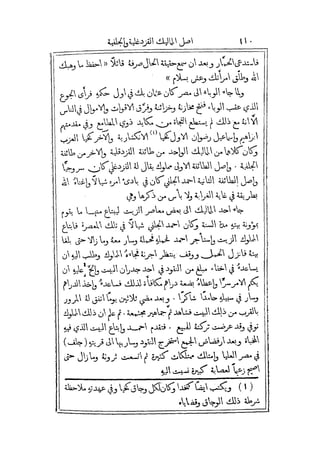 ١١٠ اصل المماليك القزدغلية والجلفية
فاستدعى الحمّار وبعد ان سمع حقيقة الحال صرفه قائلاً « احفظ ما وهبك
الله وطلّق امرأتك وعش بسلام »
ولما جاء الوباء الى مصر كان عثمان بك في اول حكمه فرأى الجوع
الذي عقب الوباء ففتح مخازنه وخزائنه وفرّق الاقوات والاموال في الناس
الا انه مع ذلك لم يستطع النجاة من مكايد ذوي المطامع وفي مقدمتهم
ابراهيم واسماعيل رضوان الاول كخيا (١) الانكشارية والاخر كخيا العزب
وكان كلاهما من المماليك الواحد من طائفة القزدغلية والاخر من طائفة
الجلفية . واصل الطائفة الاولى مملوك يقال له القزدغلي كان سروجيًا
واصل الطائفة الثانية احمد الجلفي كان في بادئ امره شيالاً واغناه الله
بطريقة في غاية الغرابة ولا بأس من ذكرها وهي
جاء احد المماليك الى بعض معاصر الزيت ليبتاع منها ما يقوم
بمؤونة بيته مدة السنة وكان احمد الجلفي شيالاً في تلك المعصرة فابتاع
المملوك الزيت واستأجر احمد لحمله فحمله وسار معه وما زالا حتى بلغا
بيته فانزل الحمل ووقف ينتظر اجرته فجاءه المملوك وطلب اليه ان
يساعده في اخفاء مبلغ من النقود في احد جدران البيت والح عليه ان
يكتم الامر سرًا واعطاه بضعة دراهم مكافأة لذلك فساعده واخذ الدراهم
وسار في سبيله حامدًا شاكرًا . وبعد مضي ثلاثين يومًا اتفق له المرور
بالقرب من ذلك البيت فشاهد ثم جماهير مجتمعة . ثم علم ان ذلك المملوك
توفي وقد عرضت تركته للمبيع . فتقدم احمد وابتاع البيت الذي فيه
الخبأة وبعد ارفضاض الجمع استخرج النقود وسار بها الى قريته ( جلف )
في مصر العليا وامتلك ممتلكات كثيرة ثم اتسعت ثروته وما زال حتى
اصبح زعيمًا لعصابة كبيرة نسبت اليه
( ١ ) ويكتب ايضًا كتخدا وكان لكل وجاق كخيا وفي عهدته ملاحظة
شرطة ذلك الوجاق وقضاياه